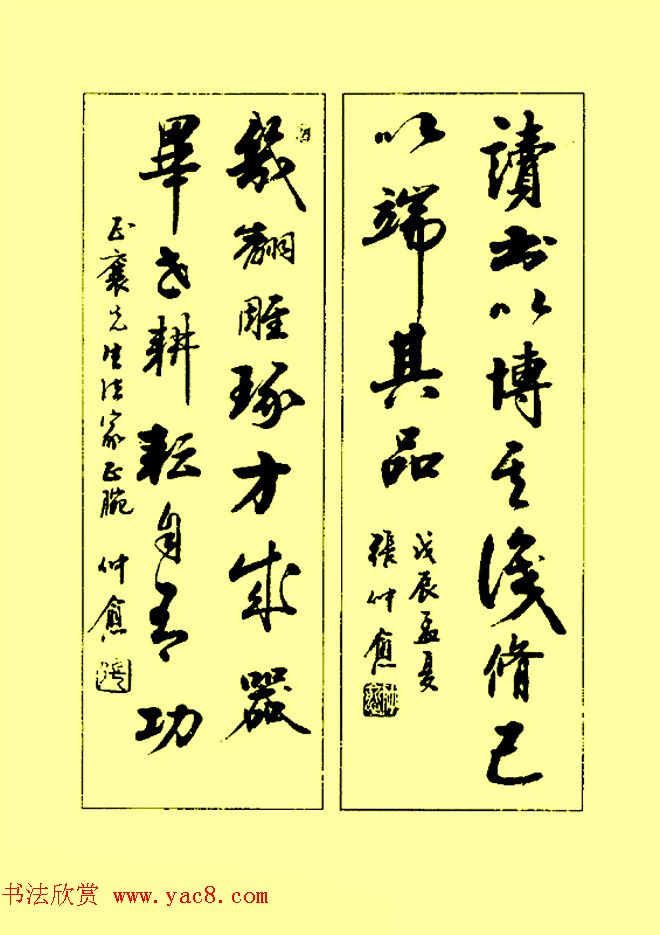 讀書以博其識修己
以端其品
戊辰孟夏
張仲愈
幾翻雕琢方成器
畢世耕耘自有功
正襄先生法家正腕 仲愈
书法欣赏 www.yac8.com